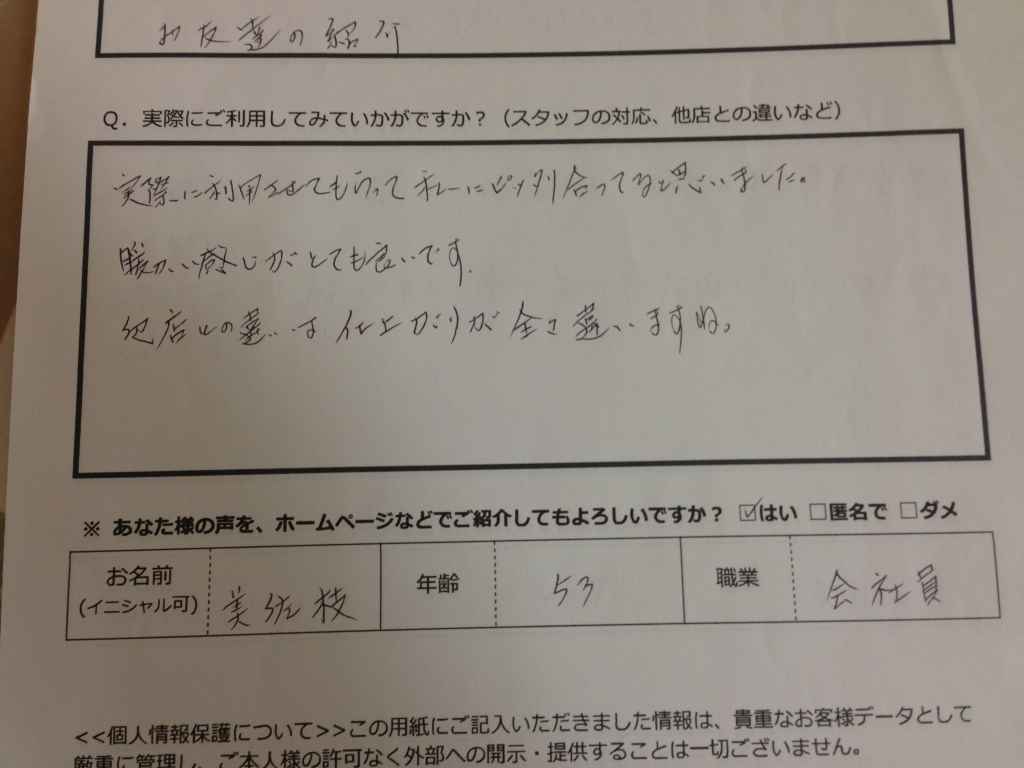 お友達の紹介
Q．実際にご利用してみていかがですか？（スタッフの対応、他店との違いなど）
実際に利用させてもらって私にピッタリ合ってると思いました。
暖かい感じがとても良いです。
他店との違いは仕上がりが全く違いますね。
※ あなた様の声を、ホームページなどでご紹介してもよろしいですか？ ☑はい □匿名で □ダメ
お名前 (イニシャル可) 美佐枝 年齢 53 職業 会社員
<<個人情報保護について>>この用紙にご記入いただきました情報は、貴重なお客様データとして
厳重に管理し、ご本人様の許可なく外部への開示・提供することは一切ございません。